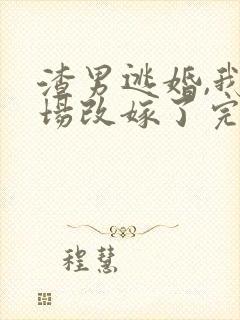 渣男逃婚,我
场改嫁了完
程慧